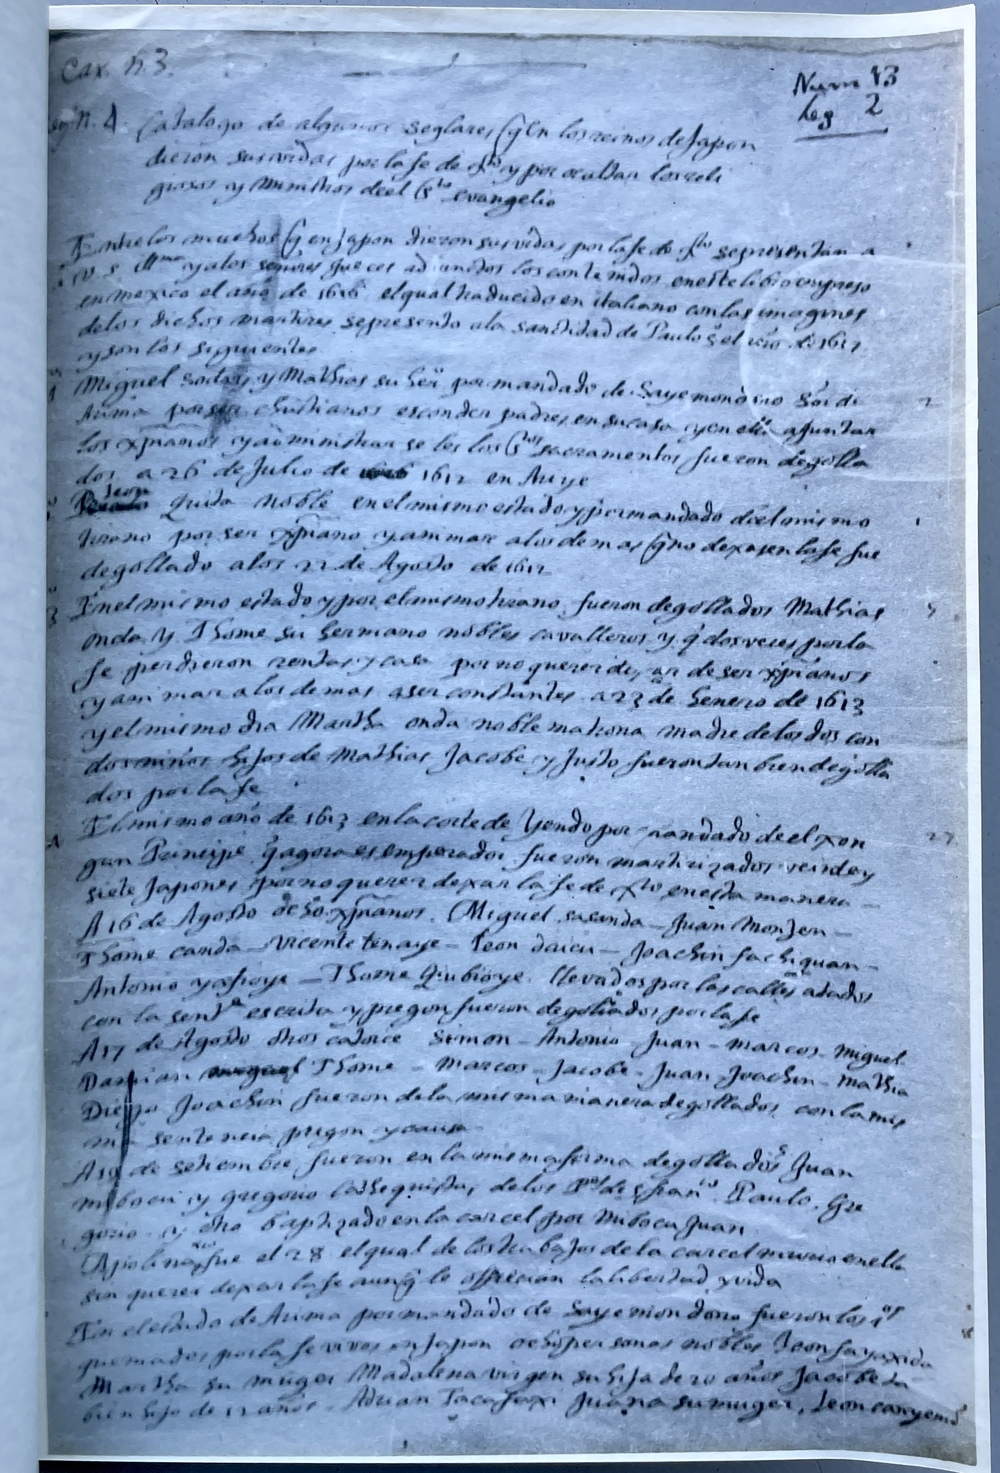 Cax. n. 3.
Num 13
Leg 2
n. 4. Catalogo de algunos seglares q̃ en los reinos de Japon
dieron sus vidas por la fe de xp̃to y por ocultar los reli
giosos y ministros de el Sto evangelio
Entre los muchos q̃ en Japon dieron sus vidas por la fe de xp̃to se presentan a
V. S. Illma y a los señores jueces adjuntos los contenidos en este libro impreso
en mexico el año de 1616 el qual traducido en italiano con las imagines
de los dichos martires se presento a la santidad de Paulo 5 el año de 1617
y son los siguientes
1 Miguel y Mathias su por mandado de Sayemono di
Arima por ser christianos esconder padres en su casa y en ella ajuntar
los xp̃ianos y administrarseles los Stos sacramentos fueron degolla
dos a 26 de Julio de 1612 en
Leon Quita noble en el mismo estado y por mandado de el mismo
tirano por ser xp̃iano y animar a los demas q̃ no dexasen la fe fue
degollado a los 22 de Agosto de 1612
3 En el mismo estado y por el mismo tirano fueron degollados Mathias
onda y Thome su hermano nobles cavalleros y q̃ dos veces por la
fe perdieron rentas y casa por no querer dexar de ser xp̃ianos
y animar a los demas a ser constantes a 23 de henero de 1613
y el mismo dia Martha onda noble matrona madre de los dos con
dos niños hijos de Mathias Jacobe y Justo fueron tambien degolla
dos por la fe
4 El mismo año de 1613 en la corte de Yendo por mandado de el xon 27
gun Principe q̃ agora es emperador fueron martirizados veinte y
siete Japones por no querer dexar la fe de xp̃to en esta manera –
A 16 de Agosto ocho xp̃ianos. Miguel sasanda – Juan Monjen –
Thome canda – Vicente tenaye – Leon daicu – Joachin fachiquan –
Antonio yafioye – Thome Quibioye. llevados por las calles atados
con la senta escrita y pregon fueron degollados por la fe
A 17 de Agosto otros catorce Simon – Antonio – Juan – Marcos – Miguel
Damian Thome – Marcos – Jacobe – Juan – Joachin – Mathia
Diego Joachin fueron de la misma manera degollados con la mis
ma sentencia pregon y causa
A 19 de setiembre fueron en la misma forma degollados Juan
Mibocu y gregorio cathequistas de los Pes de S franco. Paulo. Gre
gorio. y otro baptizado en la carcel por Mibocu Juan
Apolinario fue el 28 el qual de los trabajos de la carcel murio en ella
sin querer dexar la fe aunq̃ le ofrecian la libertad y vida
En el estado de Arima por mandado de Sayemon dono fueron los 1os
quemados por la fe vivos en Japon ocho personas nobles Leon
Martha su muger Madalena virgen su hija de 20 años Jacobe ta
bien hijo de 12 años. Adrian Juana su muger, Leon